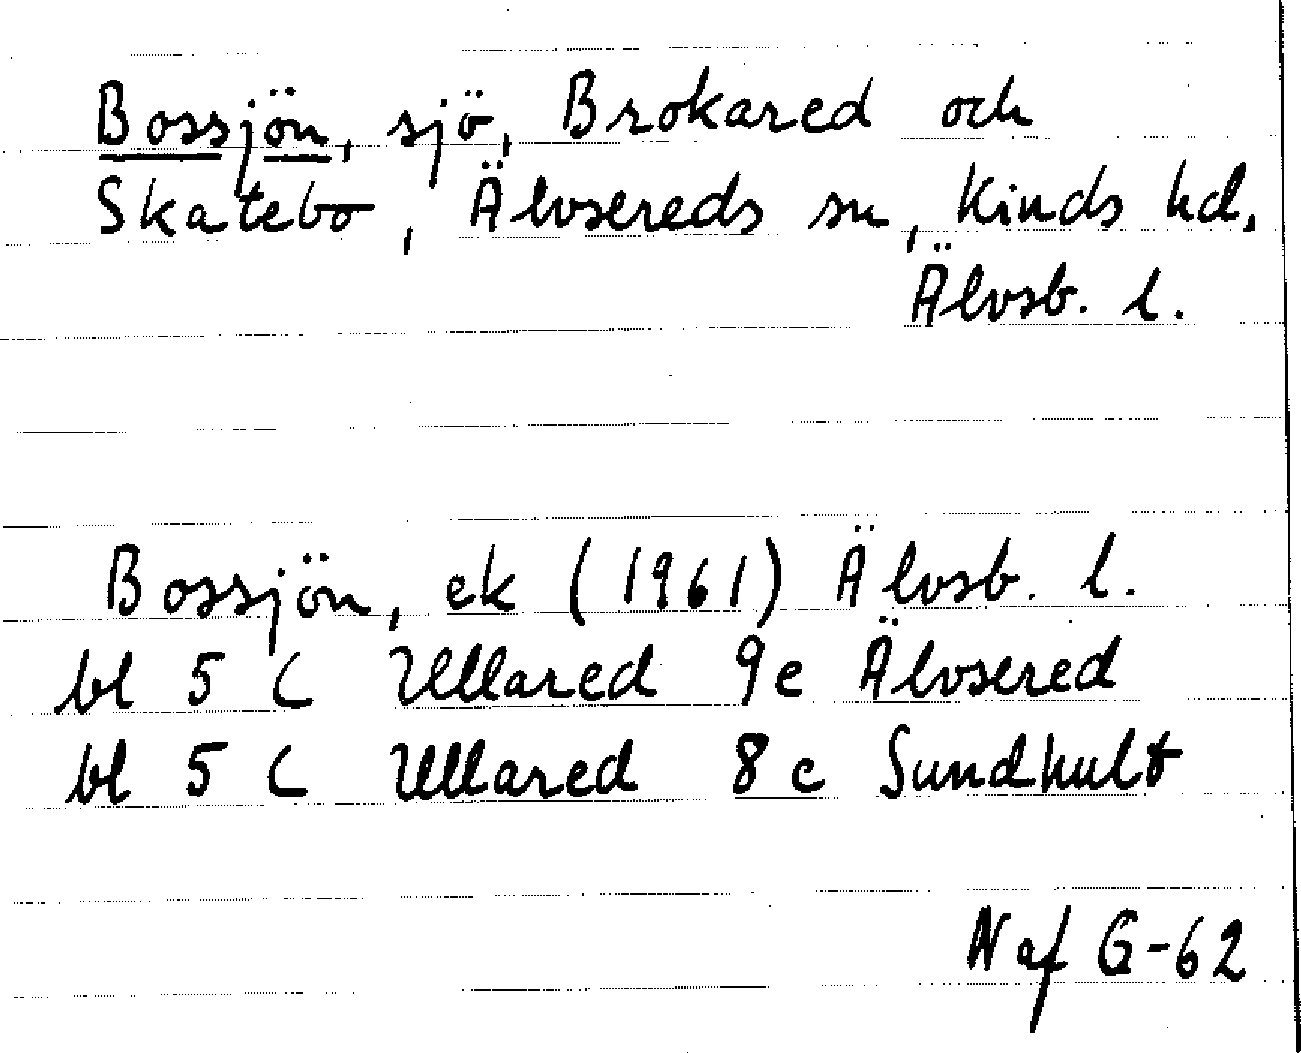 Bossjön, sjö, Brokared och
Skatebo, Älvsereds sn, Kinds hd,
Älvsb. l.
Bossjön, ek (1961) Älvsb. l.
bl 5 C Ullared 9e Älvsered
bl 5 C Ullared 8c Sundhult
N af G-62